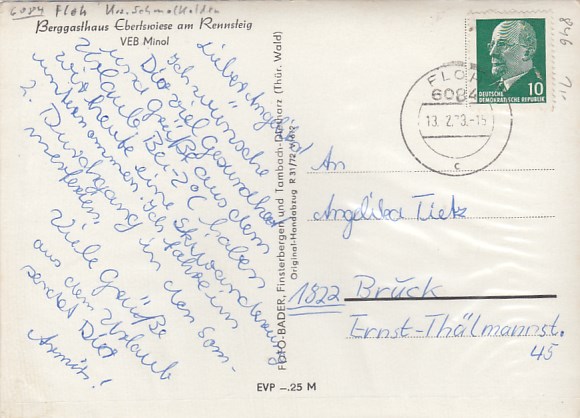 6084 Floh Krs. Schmalkalden
Berggasthaus Ebertswiese am Rennsteig
VEB Minol
Liebe Angelika!
Ich wünsche
Dir viel Gesundheit
und Grüße aus dem
Urlaub. Bei -2°C haben
wir heute eine Skiwanderung
unternommen. Ich fahre im
2. Durchgang in den Som-
merferien.
Viele Grüße
aus dem Urlaub
sendet Dir
Armin!
FOTO-BADER, Finsterbergen und Tambach-Dietharz (Thür. Wald)
Original-Handabzug R 31/72
EVP -.25 M
FLOH
6084
13. 2. 73.-15
c
DEUTSCHE
DEMOKRATISCHE REPUBLIK
10
846
An
Angelika Tietz
1822 Brück
Ernst-Thälmannst.
45